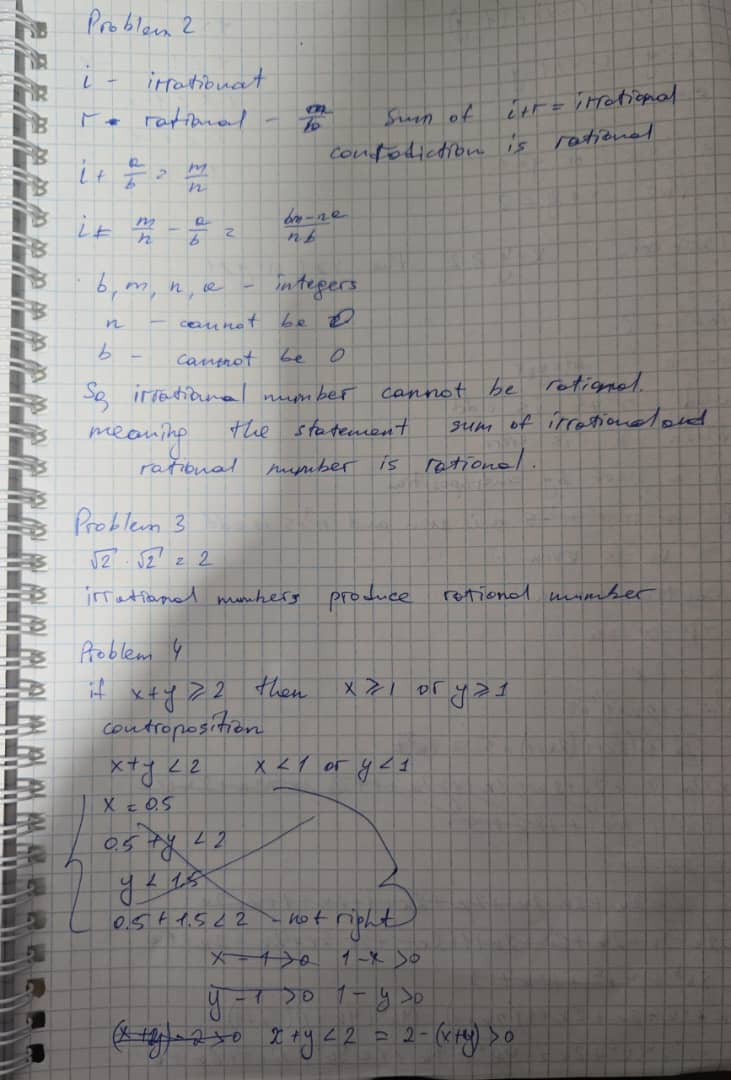 Problem 2
i - irrational
r - rational - m/b Sum of i+r = irrational
contradiction is rational
i + a/b = m/n
i = m/n - a/b = bm-na/nb
b, m, n, a - integers
n - cannot be 0
b - cannot be 0
So, irrational number cannot be rational.
meaning the statement sum of irrational and
rational number is rational.
Problem 3
√2 · √2 = 2
irrational numbers produce rational number
Problem 4
if x+y ≥ 2 then x ≥ 1 or y ≥ 1
contraposition
x+y < 2 x < 1 or y < 1
x = 0.5
0.5 + y < 2
y < 1.5
0.5 + 1.5 < 2 - not right
x - 1 > 0 1 - x > 0
y - 1 > 0 1 - y > 0
(x+y) - 2 > 0 x + y < 2 = 2 - (x+y) > 0